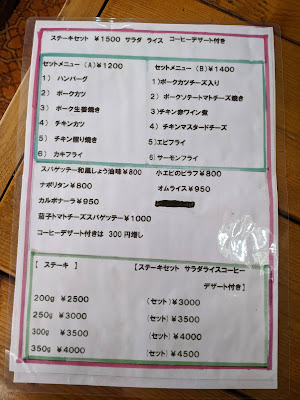 ステーキセット ￥1500 サラダ ライス コーヒーデザート付き
セットメニュー (A)￥1200
1) ハンバーグ
2) ポークカツ
3) ポーク生姜焼き
4) チキンカツ
5) チキン照り焼き
6) カキフライ
セットメニュー (B)￥1400
1)ポークカツチーズ入り
2)ポークソテートマトチーズ焼き
3)チキン赤ワイン煮
4)チキンマスタードチーズ
5)エビフライ
6)サーモンフライ
スパゲッテー和風しょう油味￥800
ナポリタン￥800
カルボナーラ￥950
茄子トマトチーズスパゲッテー￥1000
コーヒーデザート付きは 300円増し
小エビのピラフ￥800
オムライス￥950
[ ステーキ ]
200g ￥2500
250g ￥3000
300g ￥3500
350g ￥4000
[ステーキセット サラダライスコーヒー
デザート付き]
(セット)￥3000
(セット)￥3500
(セット)￥4000
(セット)￥4500